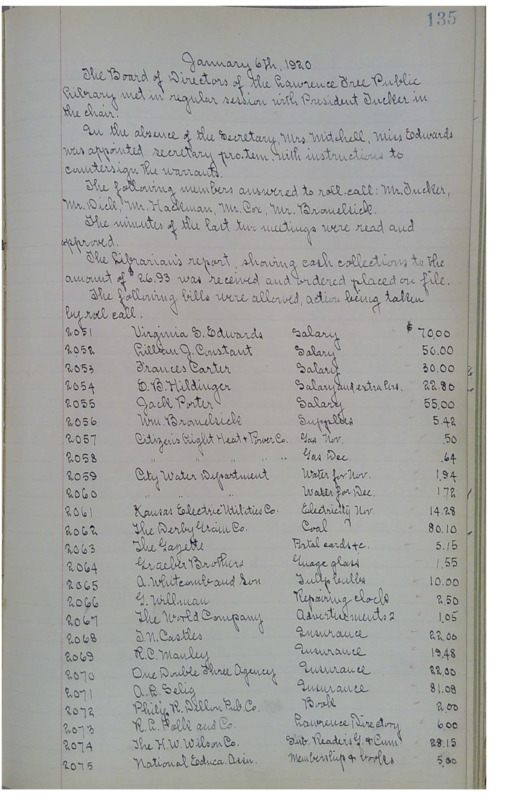 135
January 6th, 1920
The Board of Directors of the Lawrence Free Public
Library met in regular session with President Tucker in
the chair.
In the absence of the Secretary, Mrs. Mitchell, Miss Edwards
was appointed secretary pro.tem. with instructions to
countersign the warrants.
The following members answered to roll call: Mr. Tucker,
Mr. Dick, Mr. Hackman, Mr. Cox, Mr. Bromelsick.
The minutes of the last two meetings were read and
approved.
The Librarian's report, showing cash collections to the
amount of $26.93 was received and ordered placed on file.
The following bills were allowed, action being taken
by roll call.
2051 Virginia S. Edwards Salary $70.00
2052 Lillian J. Constant Salary 50.00
2053 Frances Carter Salary 30.00
2054 E.B. Hildinger Salary and extra hrs. 22.80
2055 Jack Porter Salary 55.00
2056 Wm. Bromelsick Supplies 5.42
2057 Citizens Light Heat & Power Co. Gas Nov. .50
2058 " " " " Gas Dec. .64
2059 City Water Department Water for Nov. 1.94
2060 " " Water for Dec. 1.72
2061 Kansas Electric Utilities Co. Electricity Nov. 14.28
2062 The Derby Grain Co. Coal 80.10
2063 The Gazette Postal cards &c. 5.15
2064 Graeber Brothers Guage glass 1.55
2065 A. Whitcomb and Son Tulip bulbs 10.00
2066 G. Willman Repairing clock 2.50
2067 The World Company Advertisements 2 1.05
2068 T.N. Castles Insurance 22.00
2069 R.C. Manley Insurance 19.48
2070 One Double Three Agency Insurance 22.00
2071 A.R. Selig Insurance 31.09
2072 Philip R. Dillon Pub. Co. Book 2.00
2073 R.L. Polk and Co. Lawrence Directory 6.00
2074 The H.W. Wilson Co. Sub. Readers G. & Cum 28.15
2075 National Educa. Assn. Membership & books 5.00